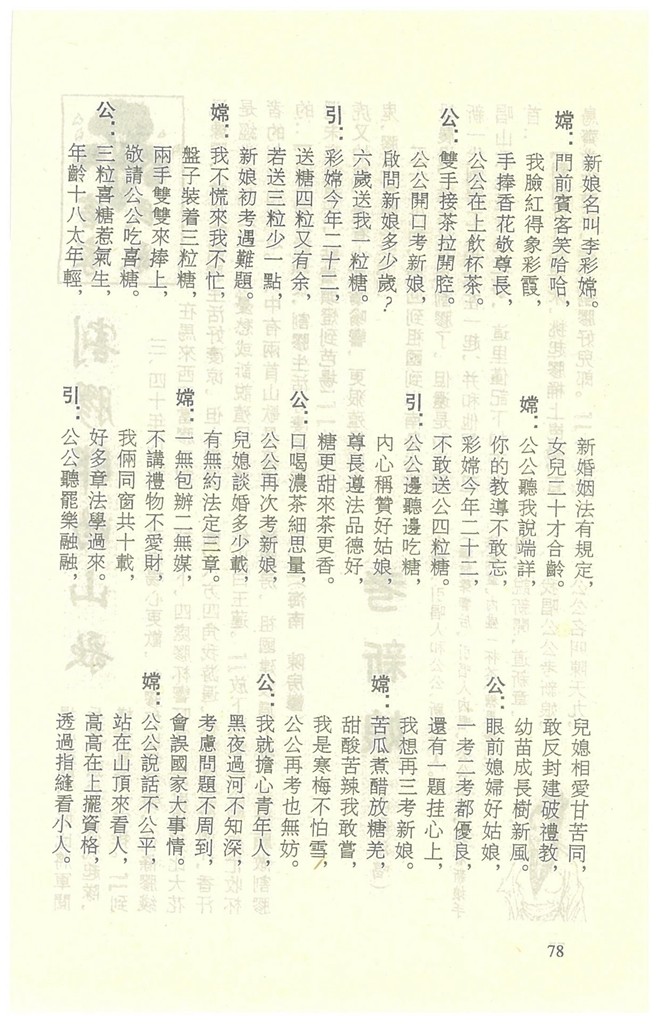 新娘名叫李彩嫦。
嫦：門前賓客笑哈哈，
我臉紅得象彩霞，
手捧香花敬尊長，
公公在上飲杯茶。
公：雙手接茶拉開腔。
公公開口考新娘，
啟問新娘多少歲？
六歲送我一粒糖。
引：彩嫦今年二十二，
送糖四粒又有余，
若送三粒少一點，
新娘初考遇難題。
嫦：我不慌來我不忙，
盤子裝着三粒糖，
兩手雙雙來捧上，
敬請公公吃喜糖。
公：三粒喜糖惹氣生，
年齡十八太年輕，
新婚姻法有規定，
女兒二十才合齡。
嫦：公公聽我說端詳，
你的教導不敢忘，
彩嫦今年二十二，
不敢送公四粒糖。
引：公公邊聽邊吃糖，
內心稱贊好姑娘，
尊長遵法品德好，
糖更甜來茶更香。
公：口喝濃茶細思量，
公公再次考新娘，
兒媳談婚多少載，
有無約法定三章。
嫦：一無包辦二無媒，
不講禮物不愛財，
我倆同窗共十載，
好多章法學過來。
引：公公聽罷樂融融，
兒媳相愛甘苦同，
敢反封建破禮教，
幼苗成長樹新風。
公：眼前媳婦好姑娘，
一考二考都優良，
還有一題挂心上，
我想再三考新娘。
嫦：苦瓜煮醋放糖羌，
甜酸苦辣我敢嘗，
我是寒梅不怕雪，
公公再考也無妨。
公：我就擔心青年人，
黑夜過河不知深，
考慮問題不周到，
會誤國家大事情。
嫦：公公說話不公平，
站在山頂來看人，
高高在上擺資格，
透過指縫看小人。
78